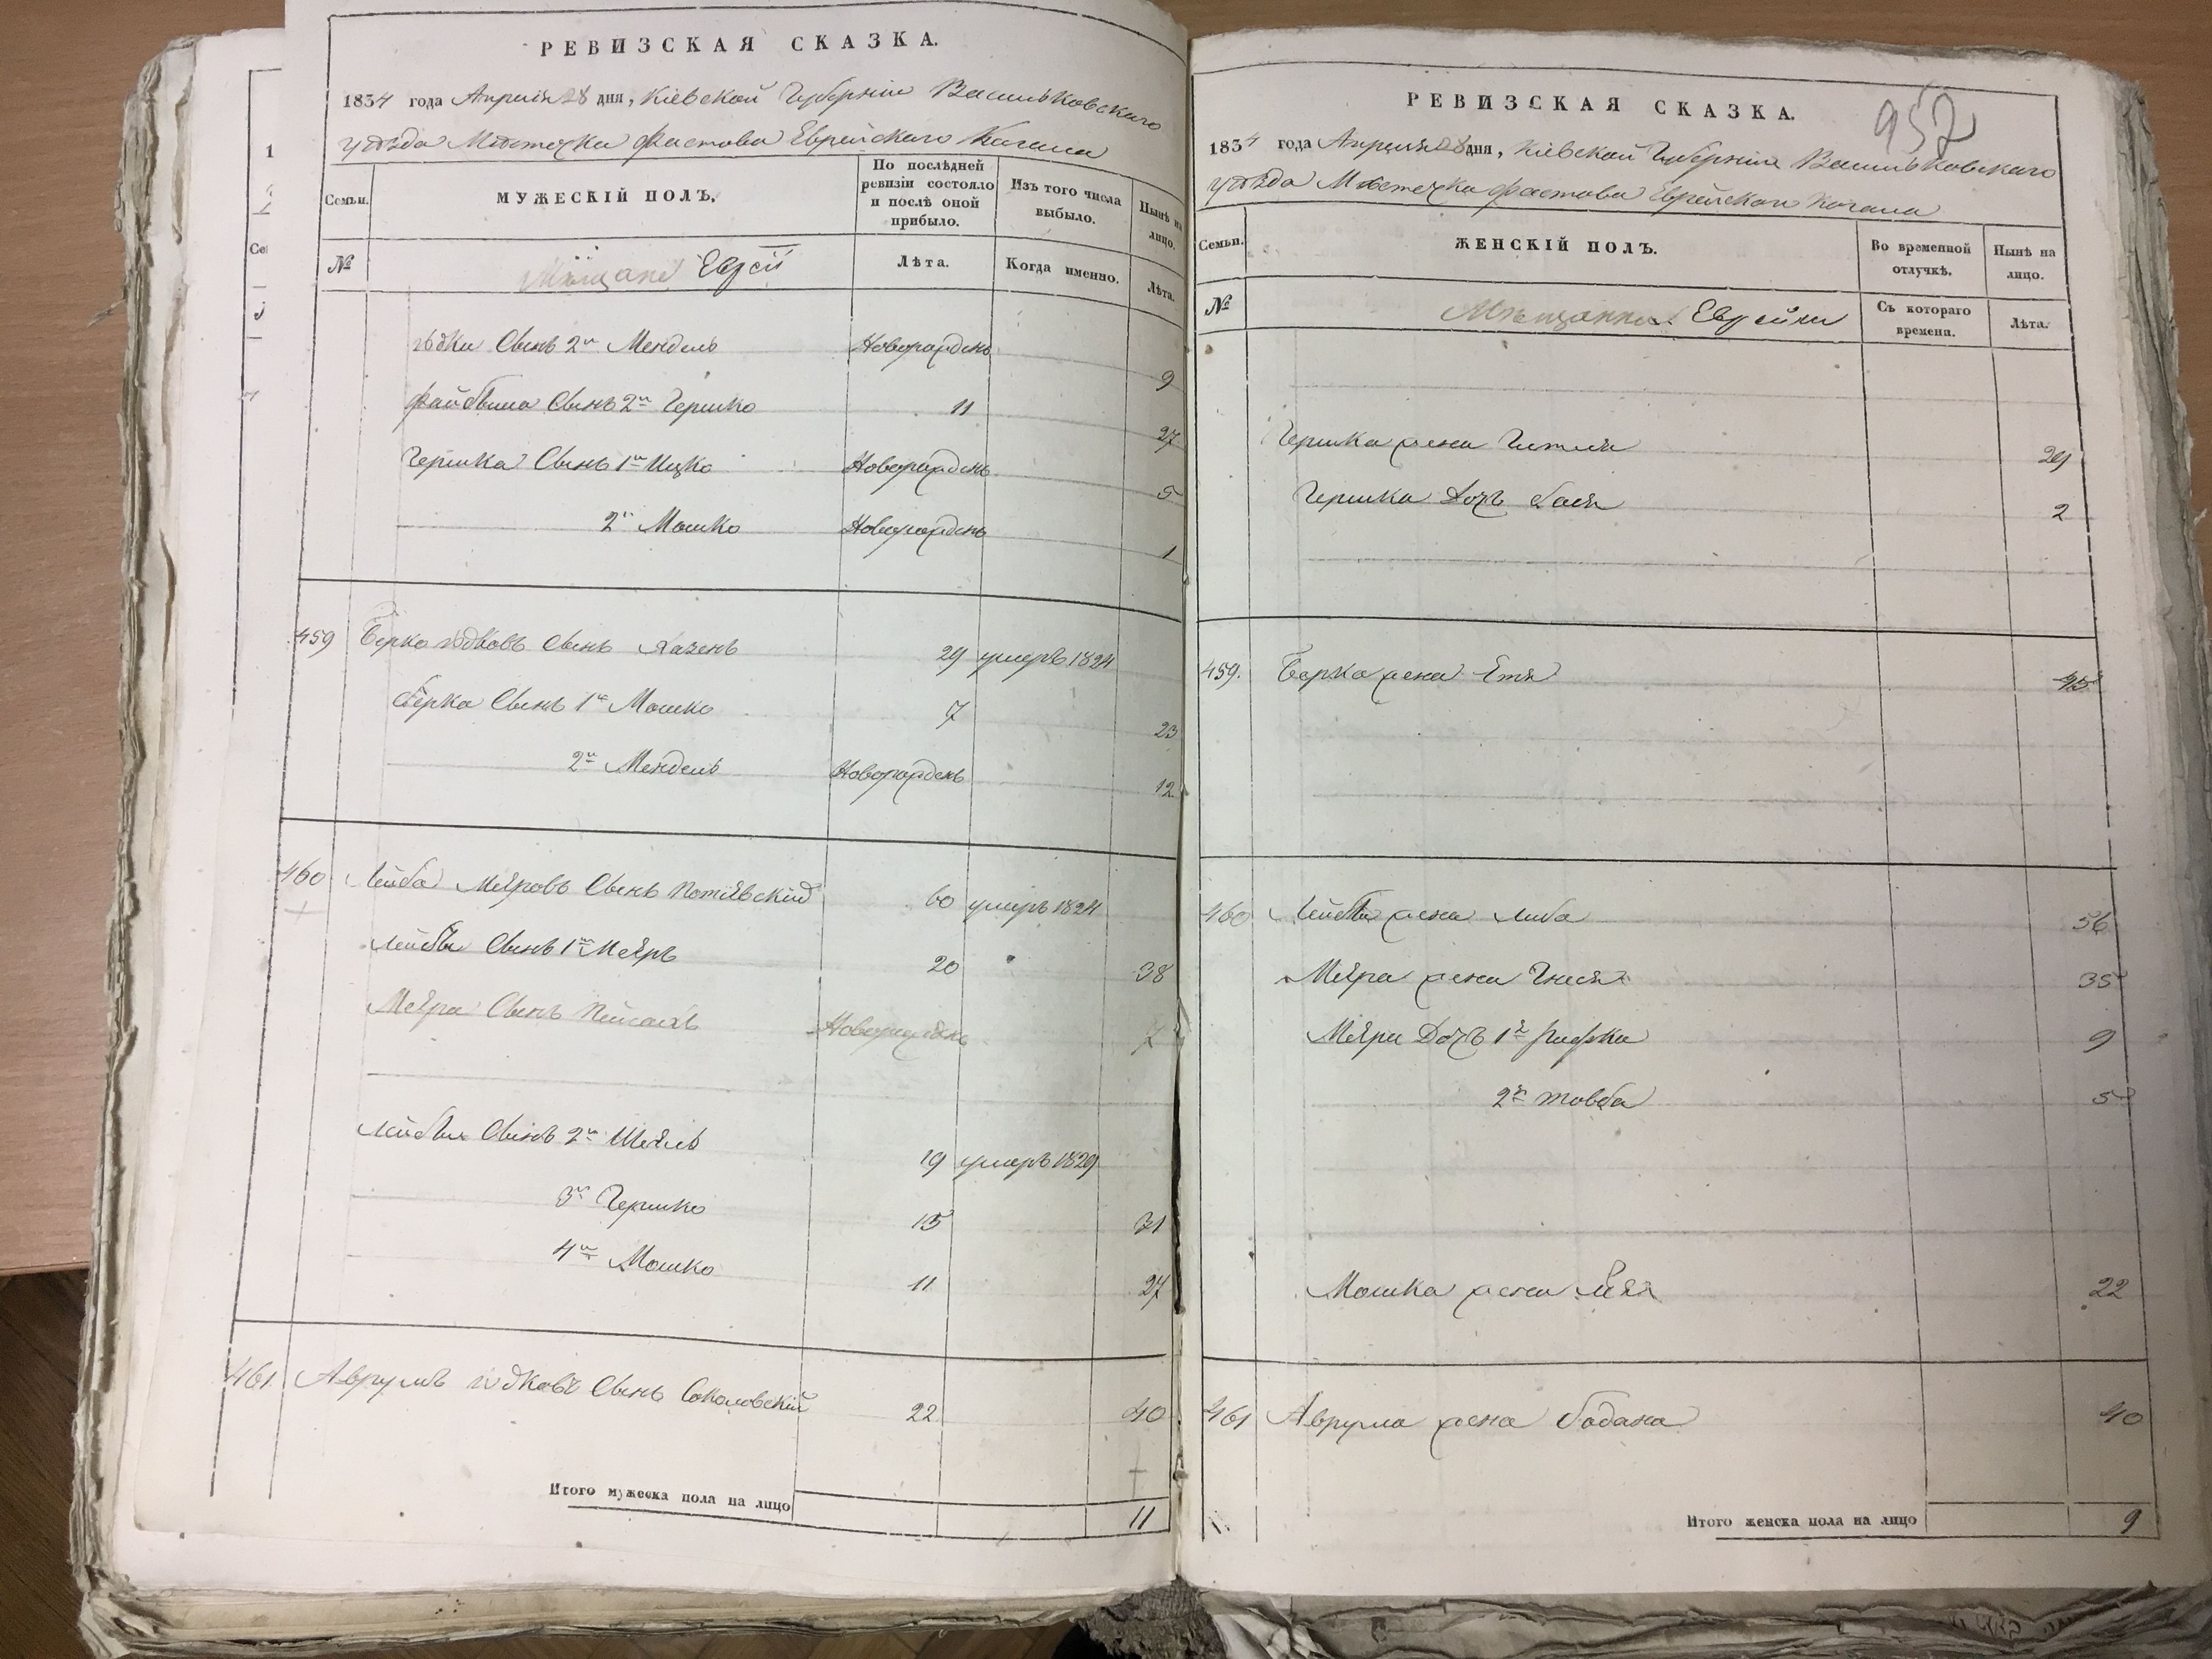 РЕВИЗСКАЯ СКАЗКА.
1834 года Апреля 28 дня, Кіевской Губерніи Васильковского
уѣзда Мѣстечка Фастова Еврейского Кагала
Семьи.
МУЖЕСКІЙ ПОЛЪ.
По послѣдней ревизіи состояло и послѣ оной прибыло.
Изъ того числа выбыло.
Нынѣ на лицо.
№
Мѣщане Евреи
Лѣта.
Когда именно.
Лѣта.
Сынъ 2й Мендель Новорожденъ 9
Файбиша Сынъ 2й Гершко 11 27
Гершка Сынъ 1й Ицко Новорожденъ 5
2й Мошко Новорожденъ 1
459 Берко Юдковъ Сынъ Хазенъ 29 умеръ 1824
Берка Сынъ 1й Мошко 7 23
2й Мендель Новорожденъ 12
460 Лейба Меяровъ Сынъ Потіевскій 60 умеръ 1824
Лейбы Сынъ 1й Меяръ 20 38
Меяра Сынъ Пейсахъ Новорожденъ 7
Лейбы Сынъ 2й 19 умеръ 1829
3й Гершко 15 31
4й Мошко 11 27
461 Аврумъ Юдковъ Сынъ Соколовскій 22 40
Итого мужеска пола на лицо 11
РЕВИЗСКАЯ СКАЗКА.
957
1834 года Апреля 28 дня, Кіевской Губерніи Васильковского
уѣзда Мѣстечка Фастова Еврейского Кагала
Семьи.
ЖЕНСКІЙ ПОЛЪ.
Во временной отлучкѣ.
Нынѣ на лицо.
№
Мѣщанки Еврейки
Съ котораго времени.
Лѣта.
Гершка жена Гитля 24
Гершка Дочь Бася 2
459. Берка жена Етя 45
460 Лейбы жена Либа 56
Меяра жена Гнеся 35
Меяра Дочь 1я Рифка 9
2я товба 5
Мошка жена Лея 22
461 Аврума жена Бодана 40
Итого женска пола на лицо 9